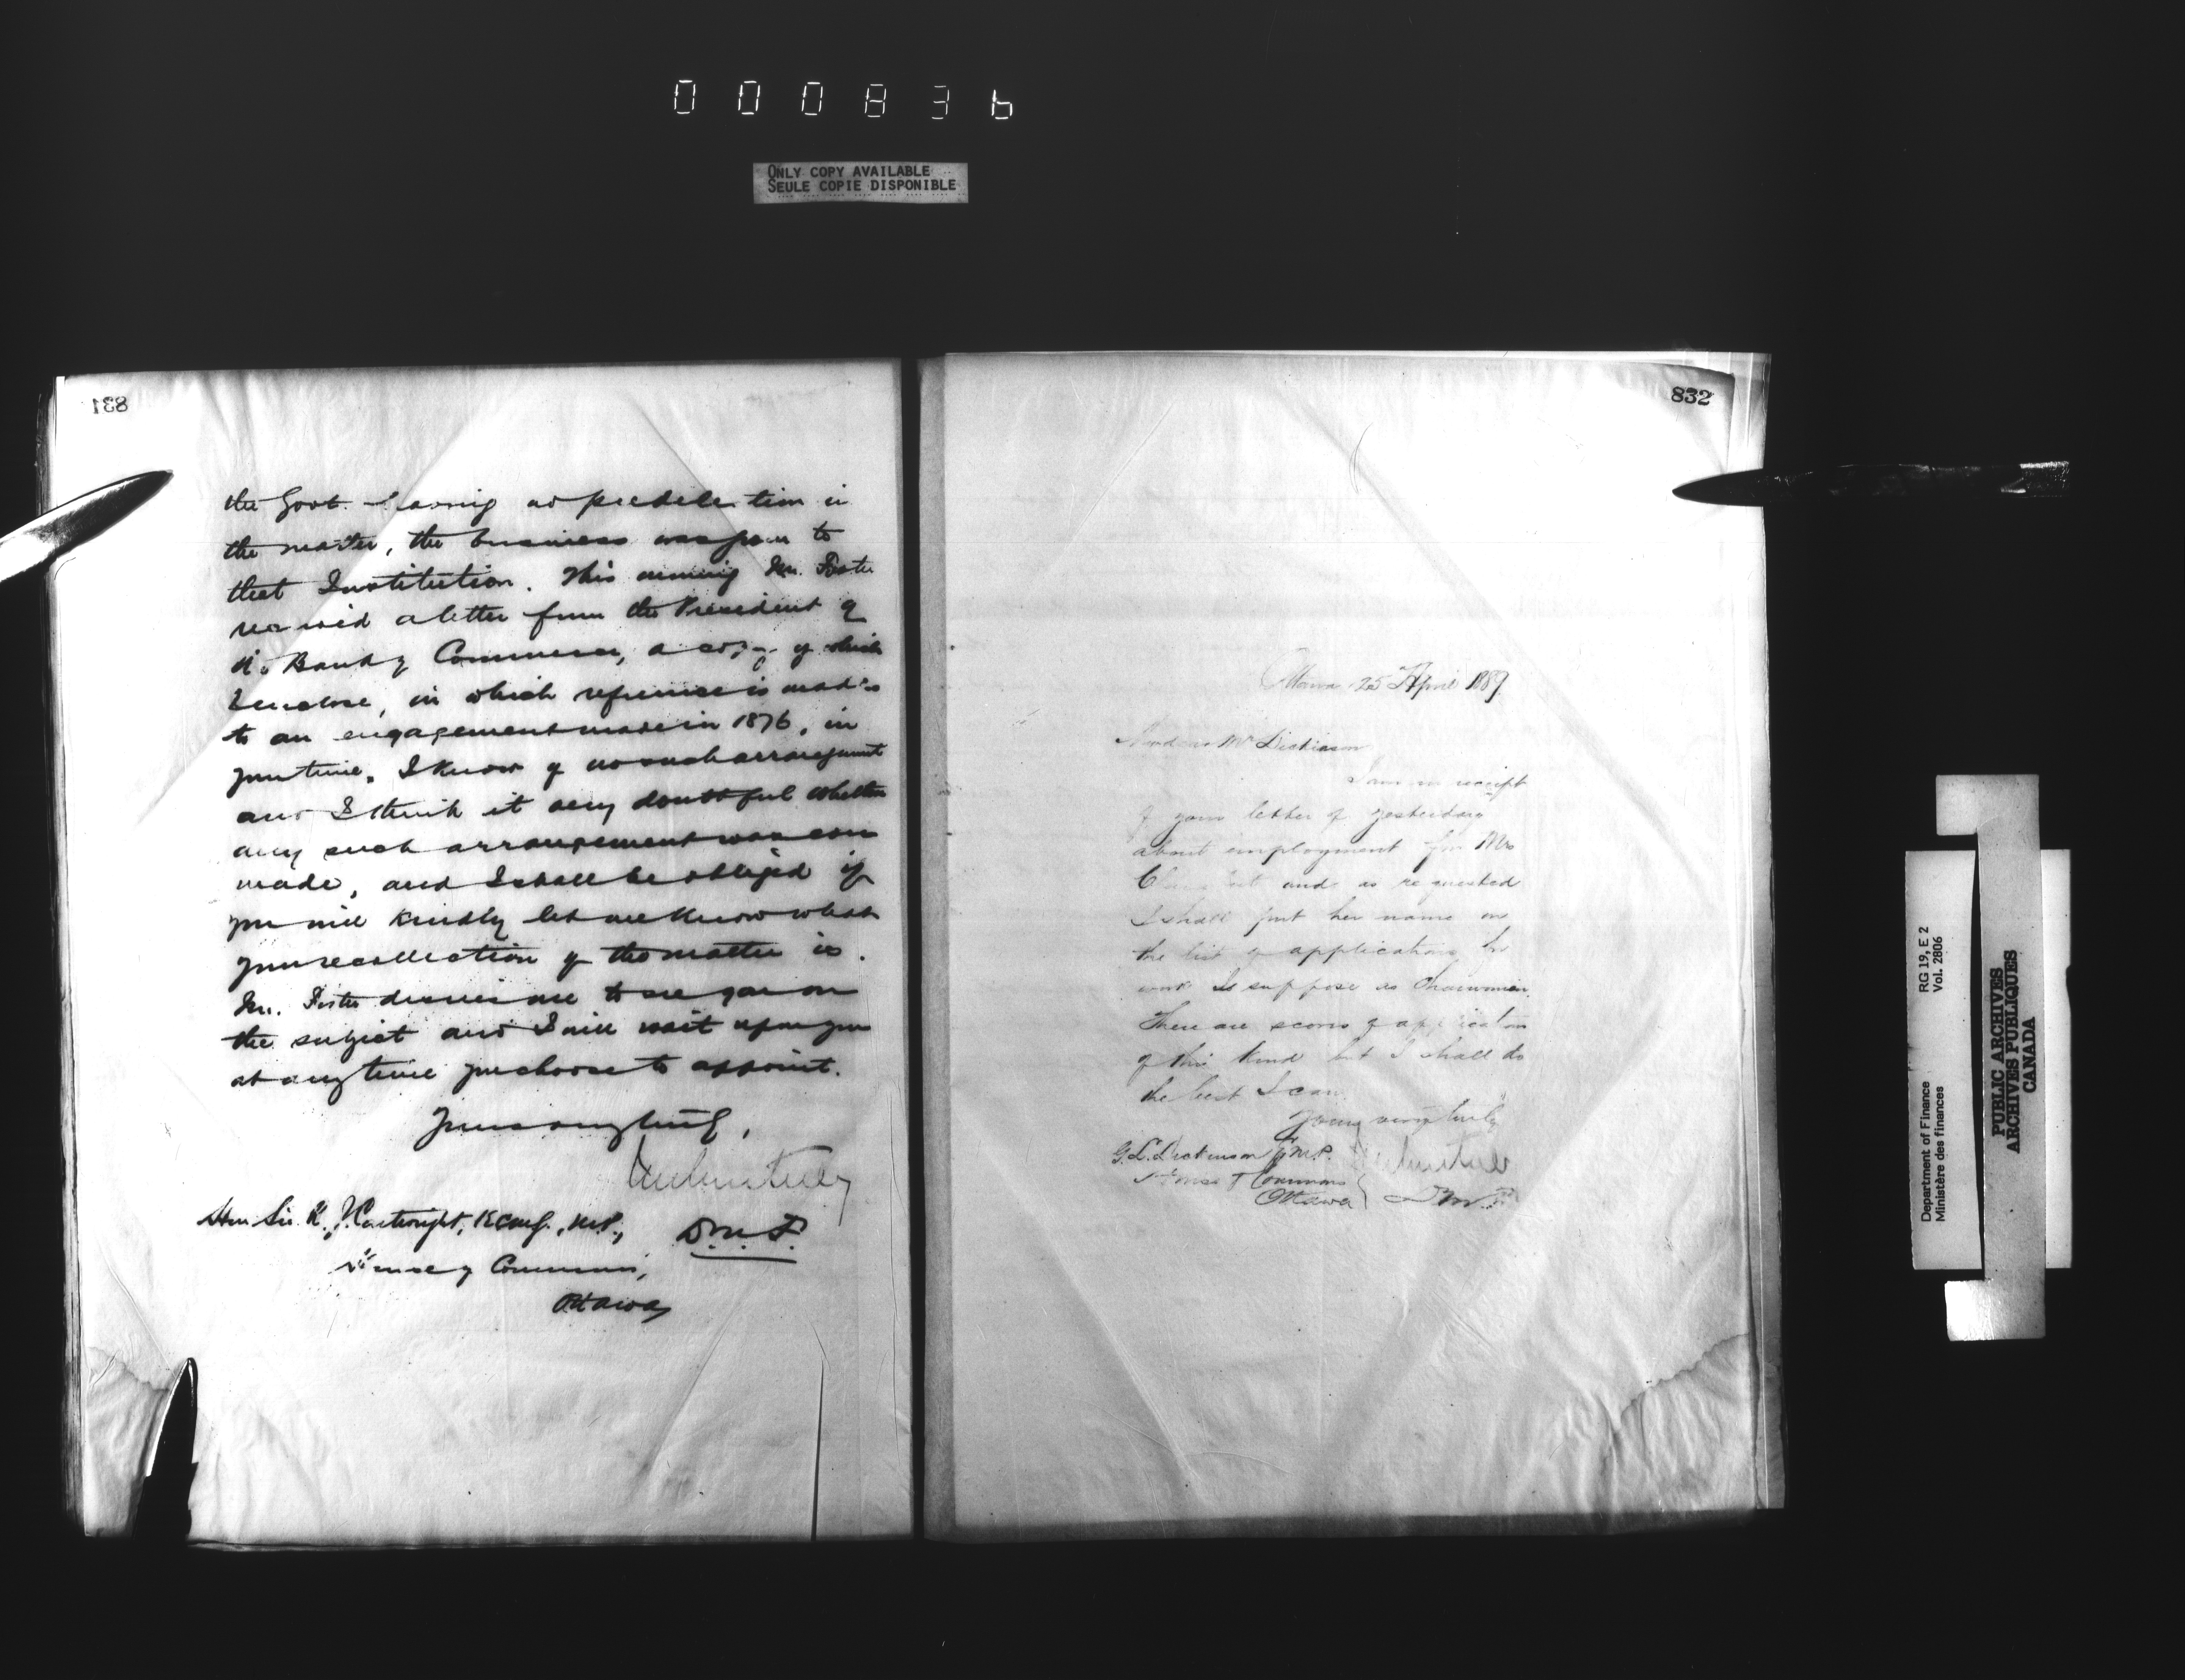 000836
ONLY COPY AVAILABLE
SEULE COPIE DISPONIBLE
831
the Govt. having no predilection in
the matter, the business was given to
that Institution. This morning Mr. Foster
received a letter from the President of
the Bank of Commerce, a copy of which
I enclose, in which reference is made
to an engagement made in 1876, in
your time. I know of no such arrangement
and I think it very doubtful whether
any such arrangement was ever
made, and I shall be obliged if
you will kindly let me know what
your recollection of the matter is.
Mr. Foster desires me to see you on
the subject and I will wait upon you
at any time you choose to appoint.
Yours very truly,
Hon Sir R. J. Cartwright, K.C.M.G., M.P.,
D.M.F.
House of Commons,
Ottawa
832
Ottawa 25 April 1889.
My dear Mr Dickinson
I am in receipt
of your letter of yesterday
about employment for Mrs
and as requested
I shall put her name on
the list of applications for
work I suppose as Charwoman.
There are scores of applications
of this kind but I shall do
the best I can.
Yours very truly
G. L. Dickinson Esq M.P.
House of Commons
Ottawa
D.M.F.
Department of Finance
Ministère des finances
RG 19, E 2
Vol. 2806
PUBLIC ARCHIVES
ARCHIVES PUBLIQUES
CANADA